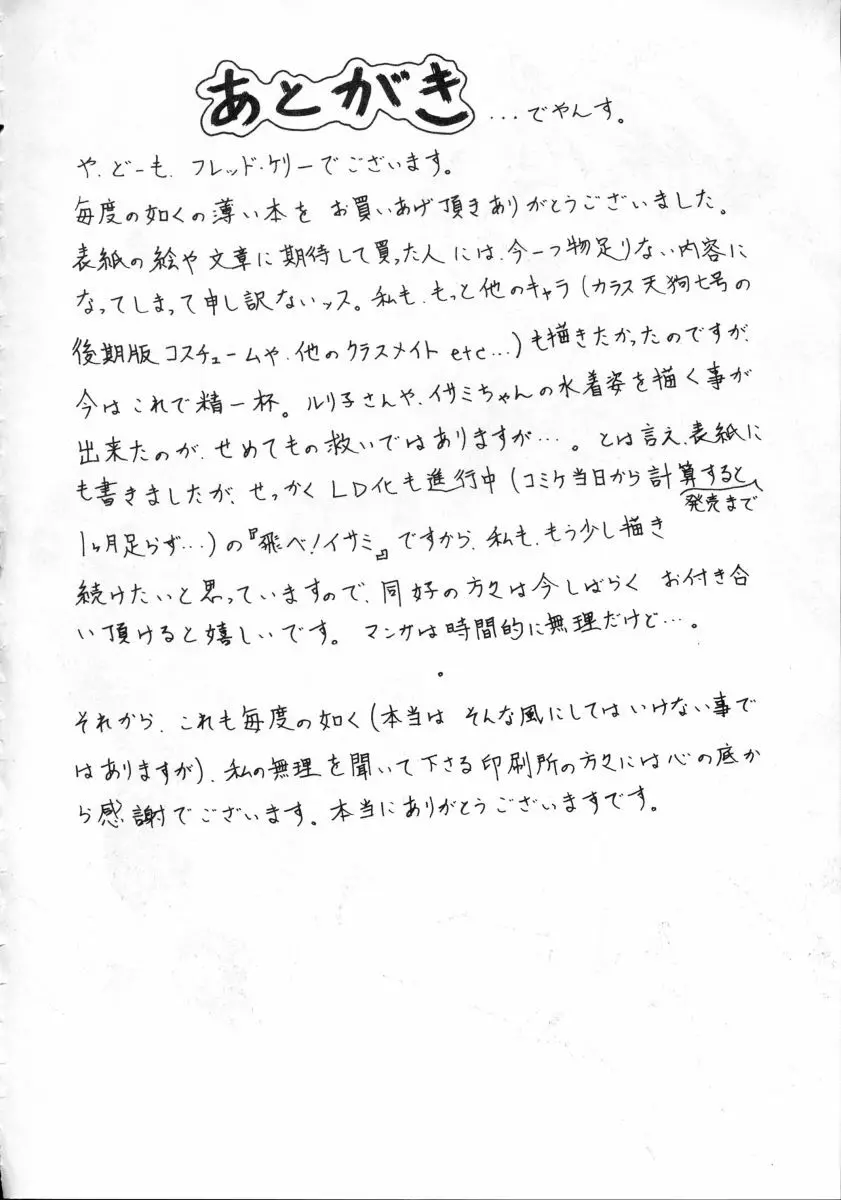 あとがき ...でやんす。
や、どーも、フレッド・ケリーでございます。
毎度の如くの薄い本を お買いあげ頂きありがとうございました。
表紙の絵や文章に期待して買った人には、今一つ物足りない内容に
なってしまって申し訳ないッス。私も、もっと他のキャラ(カラス天狗七号の
後期版コスチュームや、他のクラスメイト etc...)も描きたかったのですが、
今はこれで精一杯。ルリ子さんや、イサミちゃんの水着姿を描く事が
出来たのが、せめてもの救いではありますが…。とは言え、表紙に
も書きましたが、せっかくLD化も進行中(コミケ当日から計算すると、
発売まで
1ヶ月足らず…)の『飛べ!イサミ』ですから、私も、もう少し描き
続けたいと思っていますので、同好の方々は今しばらく お付き合
い頂けると嬉しいです。マンガは時間的に無理だけど…。
。
それから、これも毎度の如く(本当は そんな風にしてはいけない事で
はありますが)、私の無理を聞いて下さる印刷所の方々には心の底か
ら感謝でございます。本当にありがとうございますです。